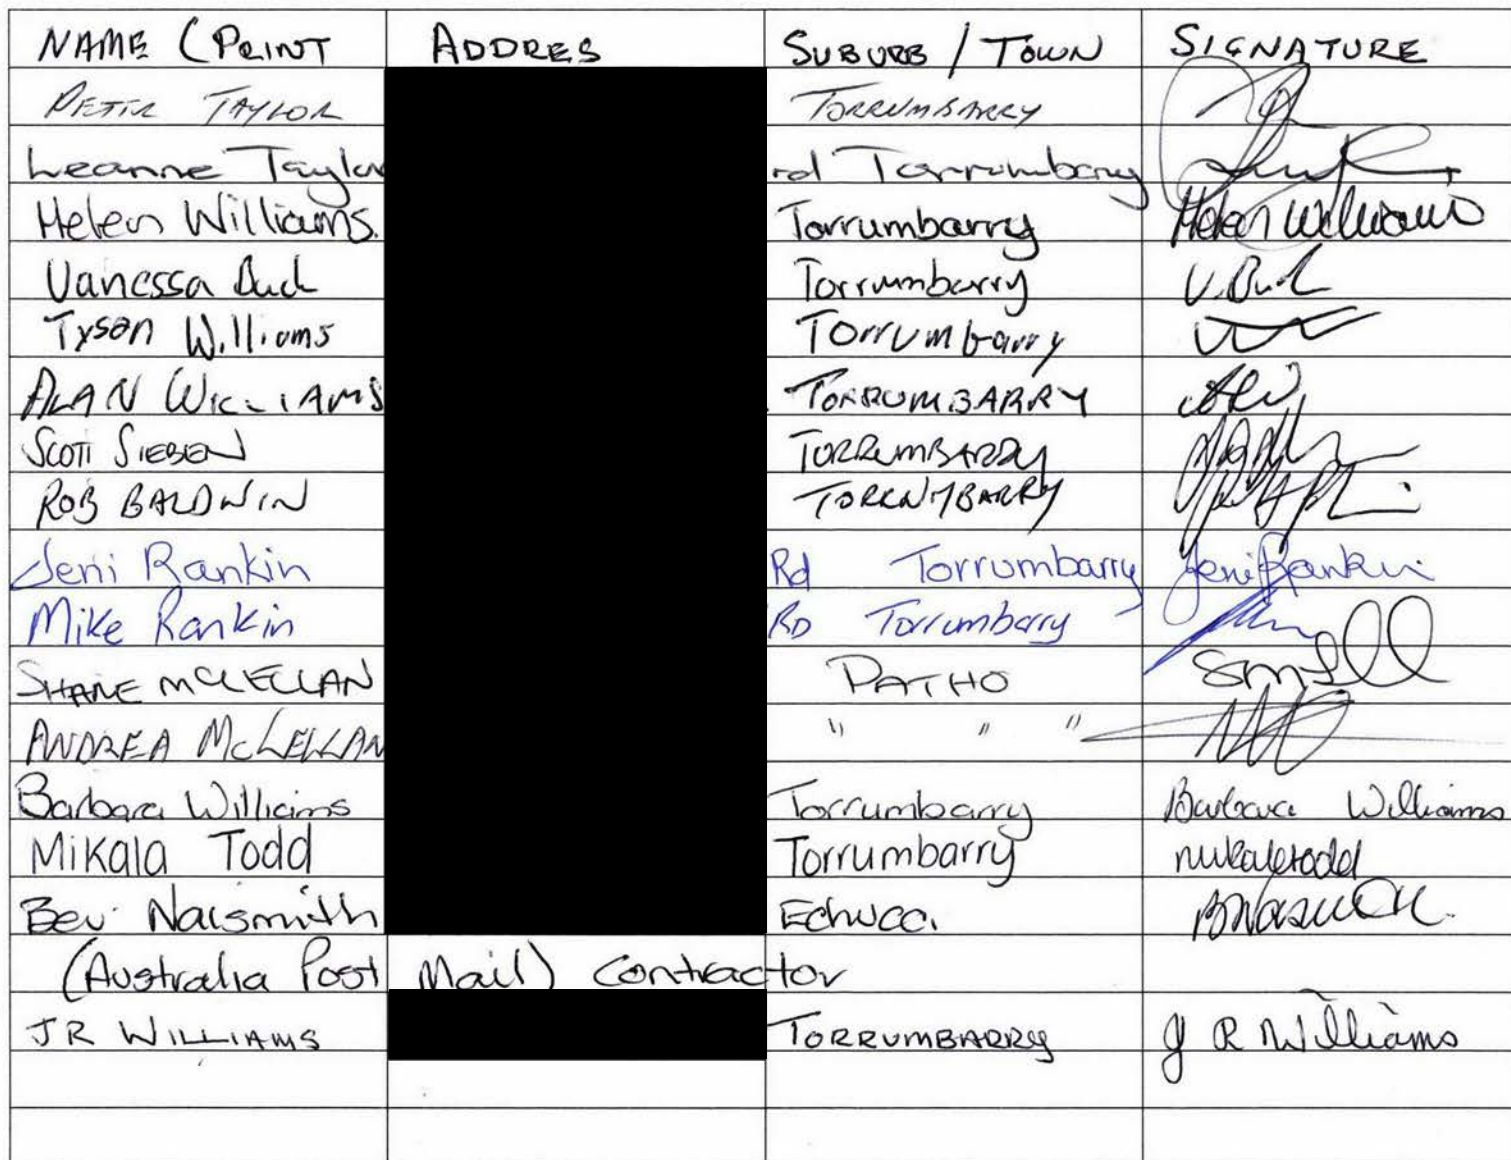 NAME (PRINT ADDRES SUBURB / TOWN SIGNATURE
PETER TAYLOR TORRUMBARRY
Leanne Taylor rd Torrumbarry
Helen Williams. Torrumbarry Helen Williams
Vanessa Torrumbarry
Tyson Williams Torrumbarry
ALAN WILLIAMS TORRUMBARRY
SCOTT SIEBEN TORRUMBARRY
ROB BALDWIN TORRUMBARRY
Jeni Rankin Rd Torrumbarry Jeni Rankin
Mike Rankin RD Torrumbarry
SHANE MCLELLAN PATHO
ANDREA MCLELLAN " " "
Barbara Williams Torrumbarry Barbara Williams
Mikala Todd Torrumbarry mikalatodd
Bev Naismith Echuca
(Australia Post Mail) Contractor
JR WILLIAMS TORRUMBARRY J R Williams